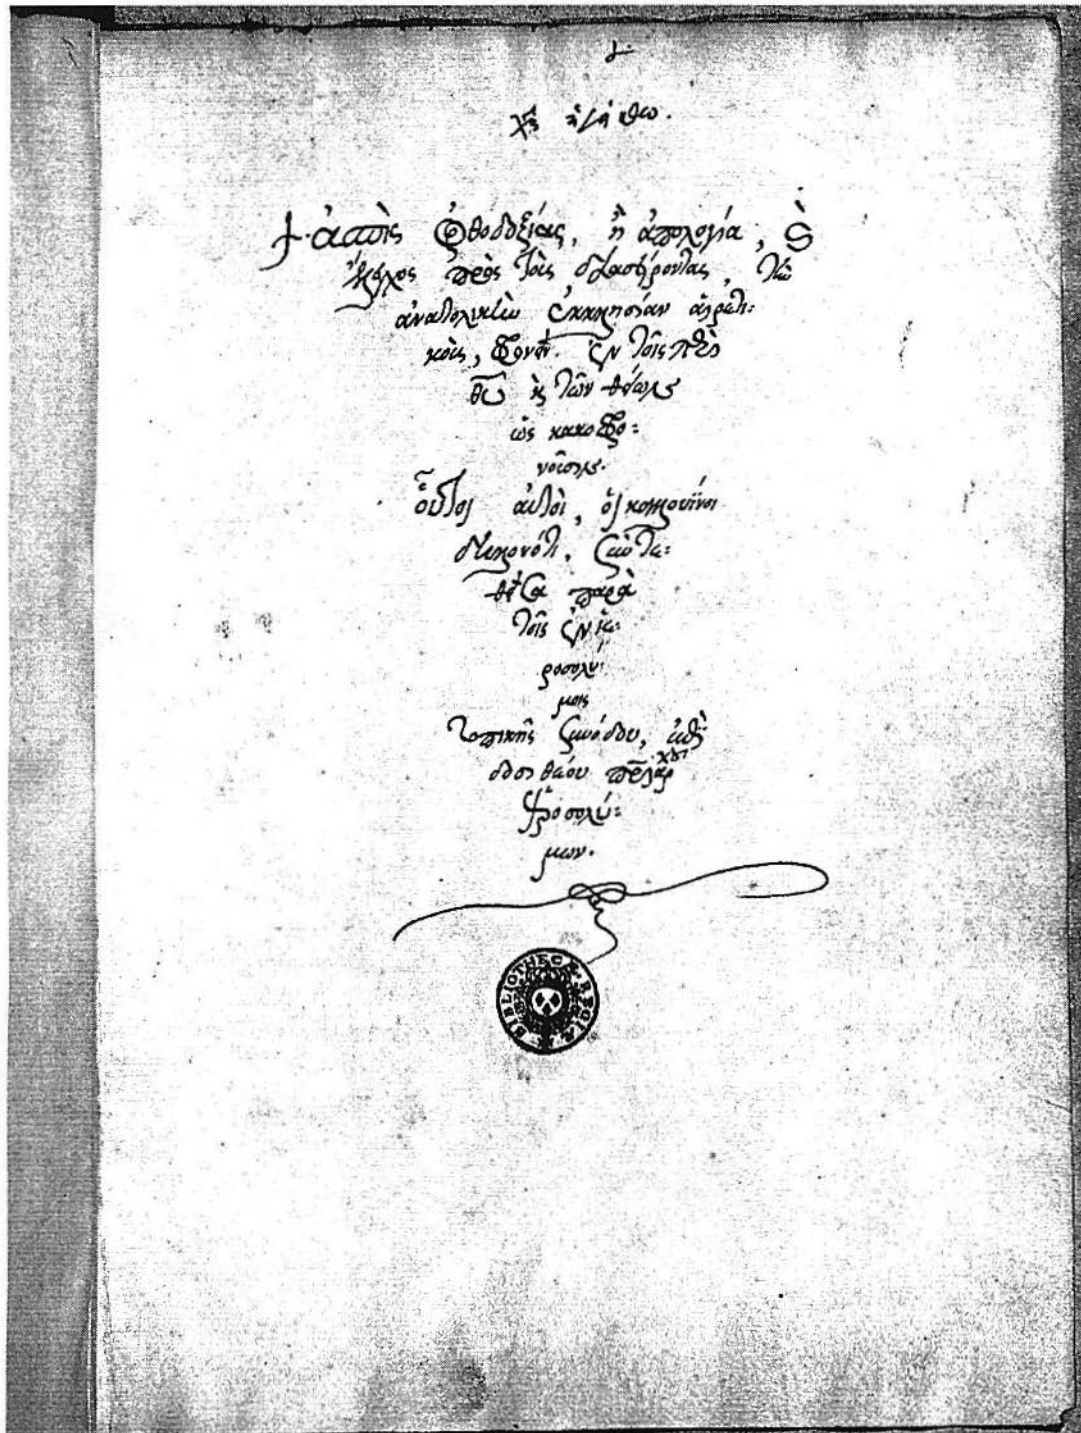 ἀσπὶς ὀρθοδοξίας, ἢ ἀπολογία, καὶ
ἔλεγχος πρὸς τοὺς διασύροντας, τὴν
ἀνατολικὴν ἐκκλησίαν αἱρετι=
κῶς, φρονεῖν. ἐν τοῖς περὶ
θυ κ τῶν θείων
ὡς κακοφρο=
νοῦσιν.
οὗτοι αὐτοὶ, οἱ καλουῖνοι
δηλονότι, συντε=
θεῖσα παρὰ
τῆς ἐν ἱε=
ροσολύ=
μοις
τοπικῆς συνόδου, ἐπὶ
δοσιθέου
ἱεροσολύ=
μων.
BIBLIOTHECÆ REGIÆ